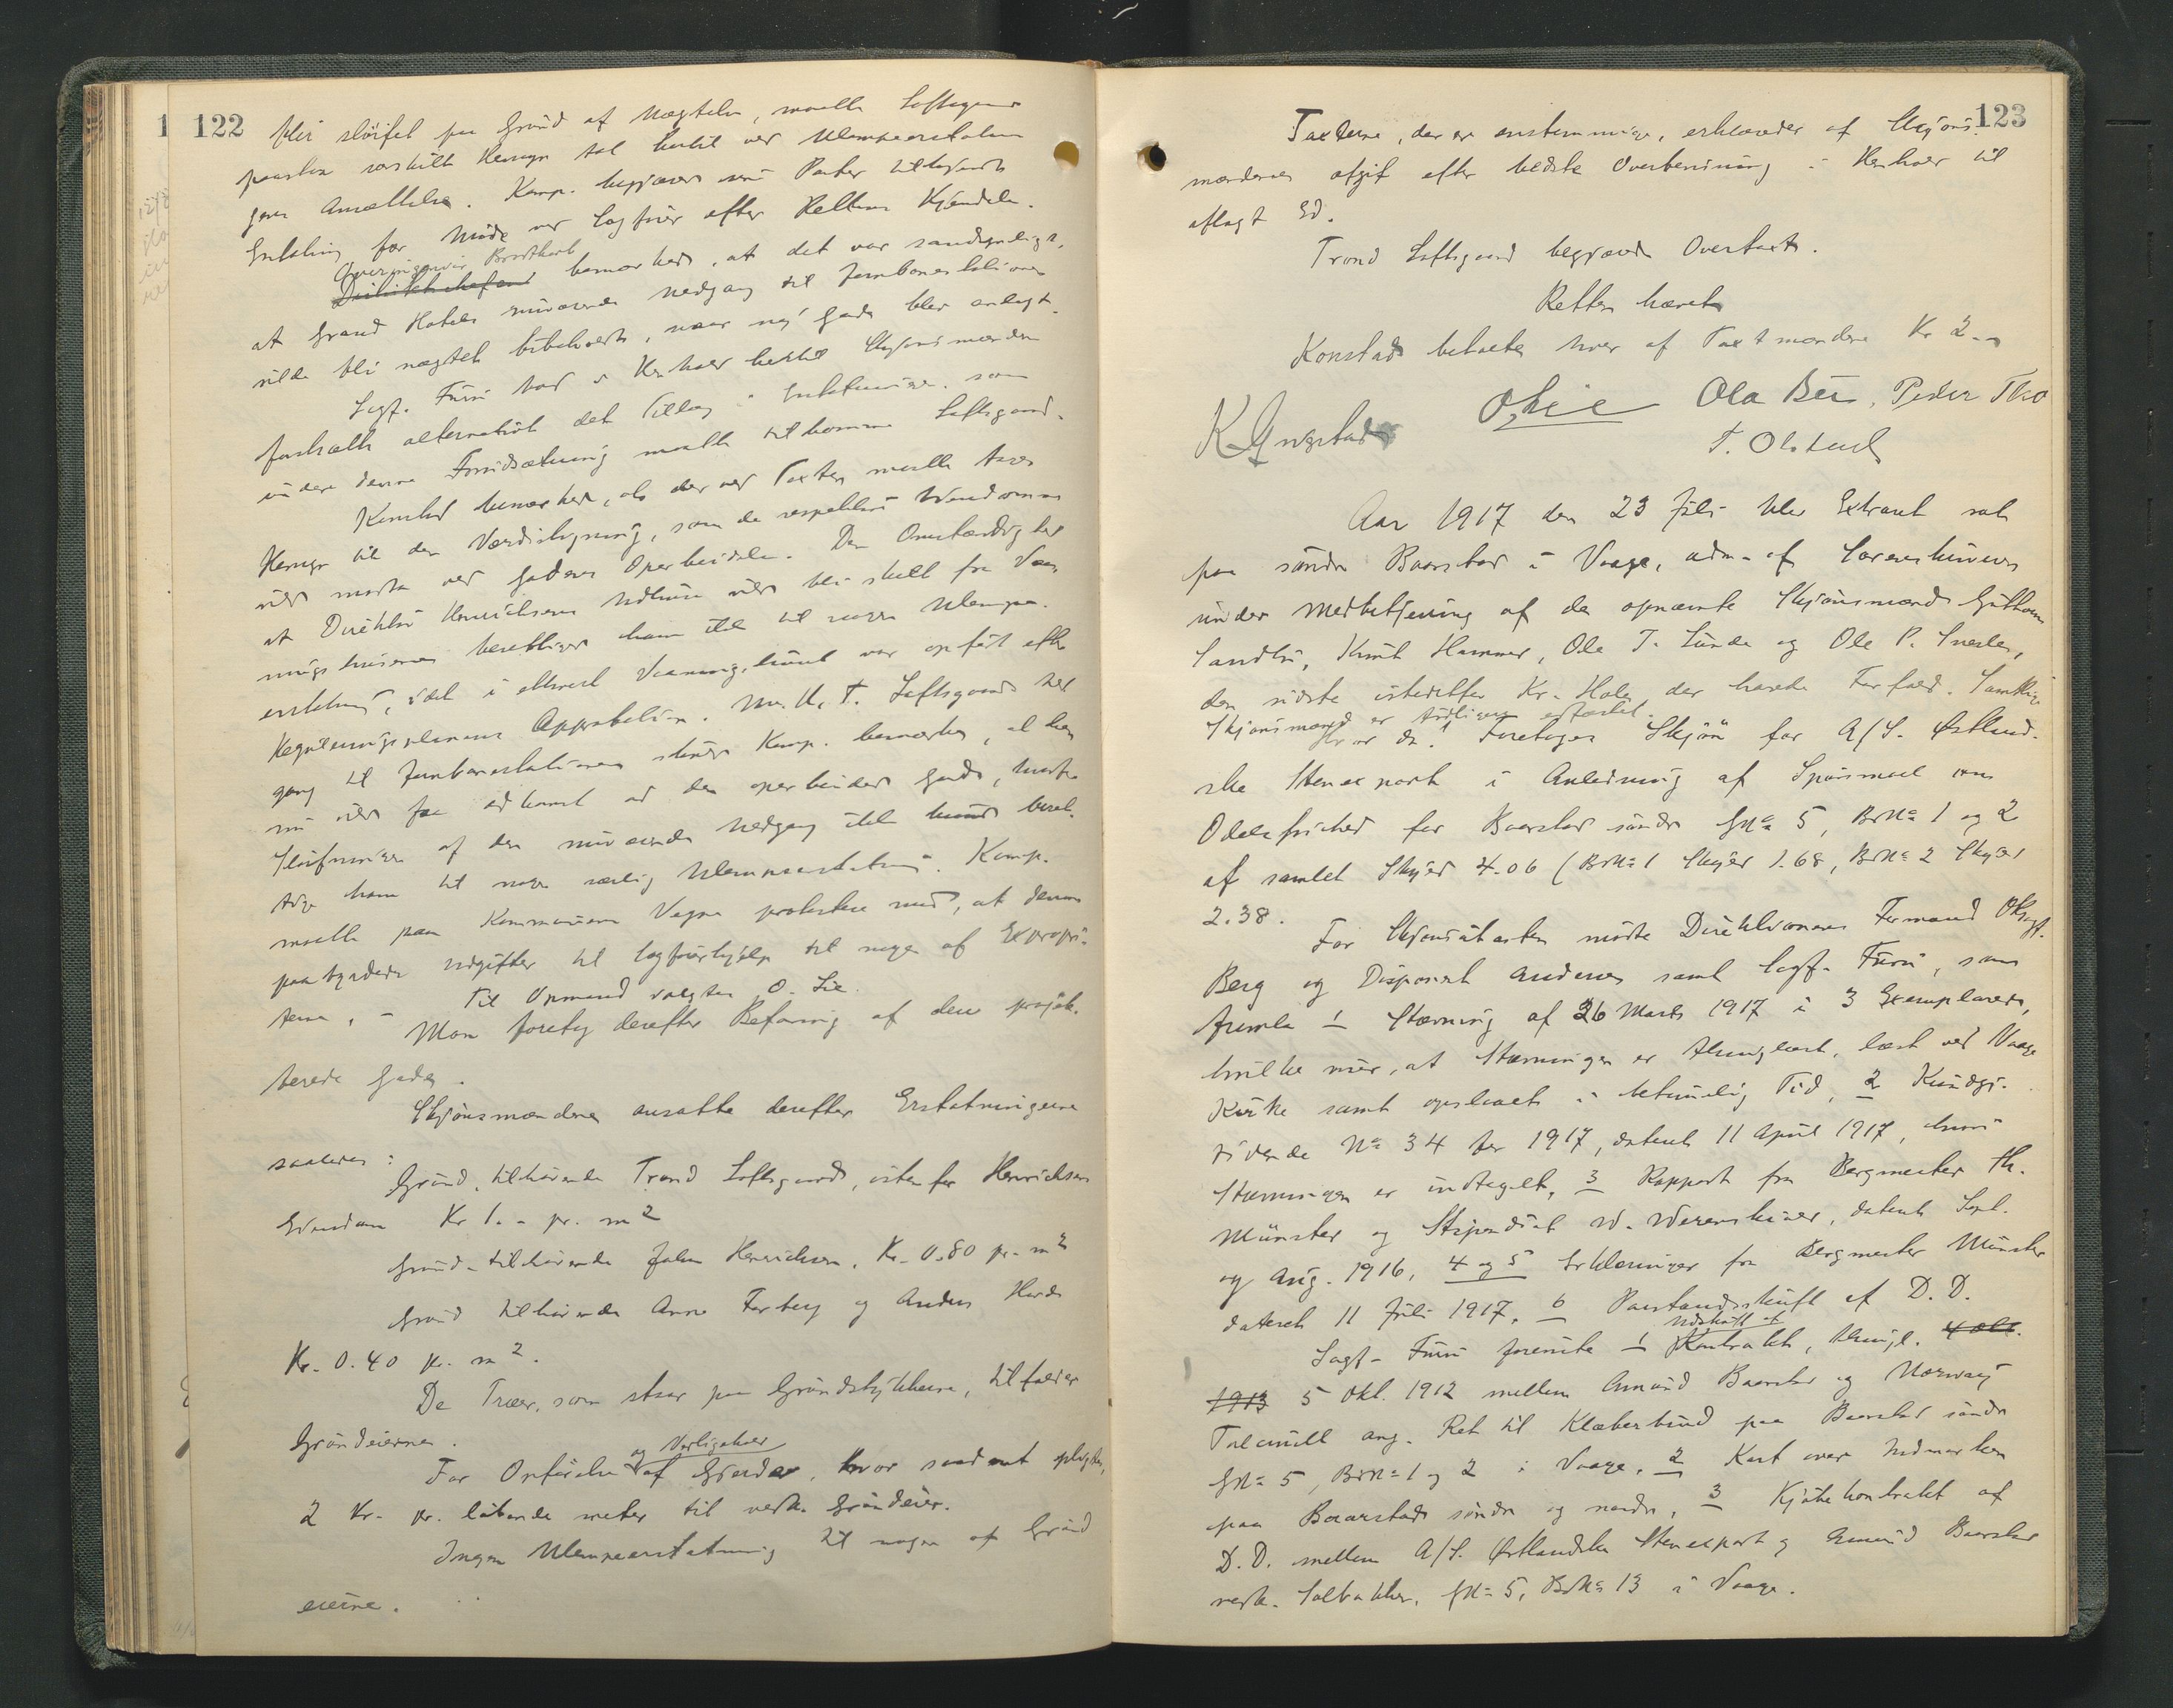 122
bli sløifet paa Grund af Nægtelse, maatte Loftsgaard
paastaa særskilt Hensyn tat hertil ved Ulempeerstatnin
gens Ansættelse. Komp. begjærede sine Parter tilkjendt
Erstatning for Møde ved Sagfører efter Rettens Kjendelse.
Overingeniør Brodtkorb
bemærkede, at det var sandsynligt,
at Grand Hotels nuværende Nedgang til Jernbanestationen
vilde bli nægtet bibeholdt, naar ny Gade blev anlagt.
Sagf. Furu bad i Henhold hertil Skjønsmændene
fastsætte alternativt det Tillæg i Erstatningen som
under denne Forudsætning maatte tilkomme Loftsgaard.
Konstad bemærkede, at der ved Taxten maatte taes
Hensyn til den Værdistigning, som de respektive Eiendomme
vilde møte ved Gadens Oparbeidelse. Den Omstændighed
at Direktør Henrichsens Udhuse vilde bli skilt fra Vaa
ningshusene berettiger ham ikke til nogen Ulempe-
erstatning, idet i ethvert Vaaningshuset var opført efter
Reguleringsplanens Approbation. M. H. t. Loftsgaards Ned
gang til Jernbanestationen skulde Komp. bemærke, at han
nu vilde faa adkomst ad den oparbeidede Gade, hvorfor
Sløifningen af den nuværende Nedgang ikke kunde beret-
tige ham til nogen særlig Ulempeerstatning. Komp.
maatte paa Kommunens Vegne protestere mod, at denne
paabyrdedes Udgifter til Sagførerhjælp til nogen af Expropri-
terne. -
Til Opmand valgtes O. Lie.
Man foretog derefter Befaring af den projek-
terede Gade.
Skjønsmændene ansatte derefter Erstatningerne
saaledes:
Grund, tilhørende Trond Loftsgaard, østenfor Henrichsens
Eiendom Kr 1.- pr. m2
Grund tilhørende John Henrichsen, Kr. 0.80 pr. m2
Grund tilhørende Anne Forberg og Anders Harde
Kr. 0.40 pr. m2.
De Træer, som staar paa Grundstykkerne, tilfalder
Grundeierne.
og Vedligehold
For Opførelse af Gjerder, hvor saadant opsættes,
2 Kr. pr. løbende meter til vedk. Grundeier.
Ingen Ulempeerstatning til nogen af Grund
eierne.
123
Taxterne, der er enstemmige, erklæredes af Skjøns-
mændene afgit efter bedste Overbevisning i Henhold til
aflagt Ed.
Trond Loftsgaard begjærede Overtaxt.
Retten hævet
Konstad betalte hver af Taxtmændene Kr 2.-
K Konstad O, Lie Ola Bu, Peder Tho
T. Olstad
Aar 1917 den 23 Juli blev Extraret sat
paa søndre Baarstad i Vaage, adm. af Sorenskriveren
under Medbetjening af de opnævnte Skjønsmænd Guttorm
Sandbu, Knut Hammer, Ole T. Sunde og Ole P. Snerle,
den sidste istedetfor Kr. Hole, der havde Forfald. Samtlige
Skjønsmænd er tidligere edfæstet.
Hvor da: Foretages Skjøn for A/S. Østland-
ske Stenexport i Anledning af Spørsmaal om
Odelsfrihed for Baarstad søndre Gn= 5, Brn= 1 og 2
af samlet Skyld 4.06 (Brn= 1 Skyld 1.68, Brn= 2 Skyld
2.38.
For Skjønsitanten mødte Direktionens Formand O.sagf.
Berg og Disponent Andersen samt Sagf. Furu, som
fremla 1 Stævning af 26 Marts 1917 i 3 Exemplarer,
hvilke viser, at Stævningen er thinglæst, læst ved Vaage
Kirke samt opslaaet i betimelig Tid, 2 Kundgj-
ridende No 34 for 1917, dateret 11 April 1917, hvori
Stævningen er indtaget, 3 Rapport fra Bergmester Th.
Münster og Stipendiat W. Werenskiold, dateret Sept.
og Aug. 1916, 4 og 5 Erklæringer fra Bergmester Münster
dateret 11 Juli 1917, 6 Paastandsskrift af D. D.
Udskrift af
Sagf. Furu fremla 1 Kontrakt, thingl. 4 okt.
1913 5 Okt. 1912 mellem Amund Baarstad og Norway
Talcmill ang. Ret til Klæberbrud paa Baarstad søndre
Gn= 5, Brn= 1 og 2 i Vaage. 2 Kart over Indmarken
paa Baarstad søndre og nordre, 3 Kjøbekontrakt af
D. D. mellem A/S. Østlandske Stenexport og Amund Baarstad
vedk. Solbakken, Gn= 5, Brn= 13 i Vaage.